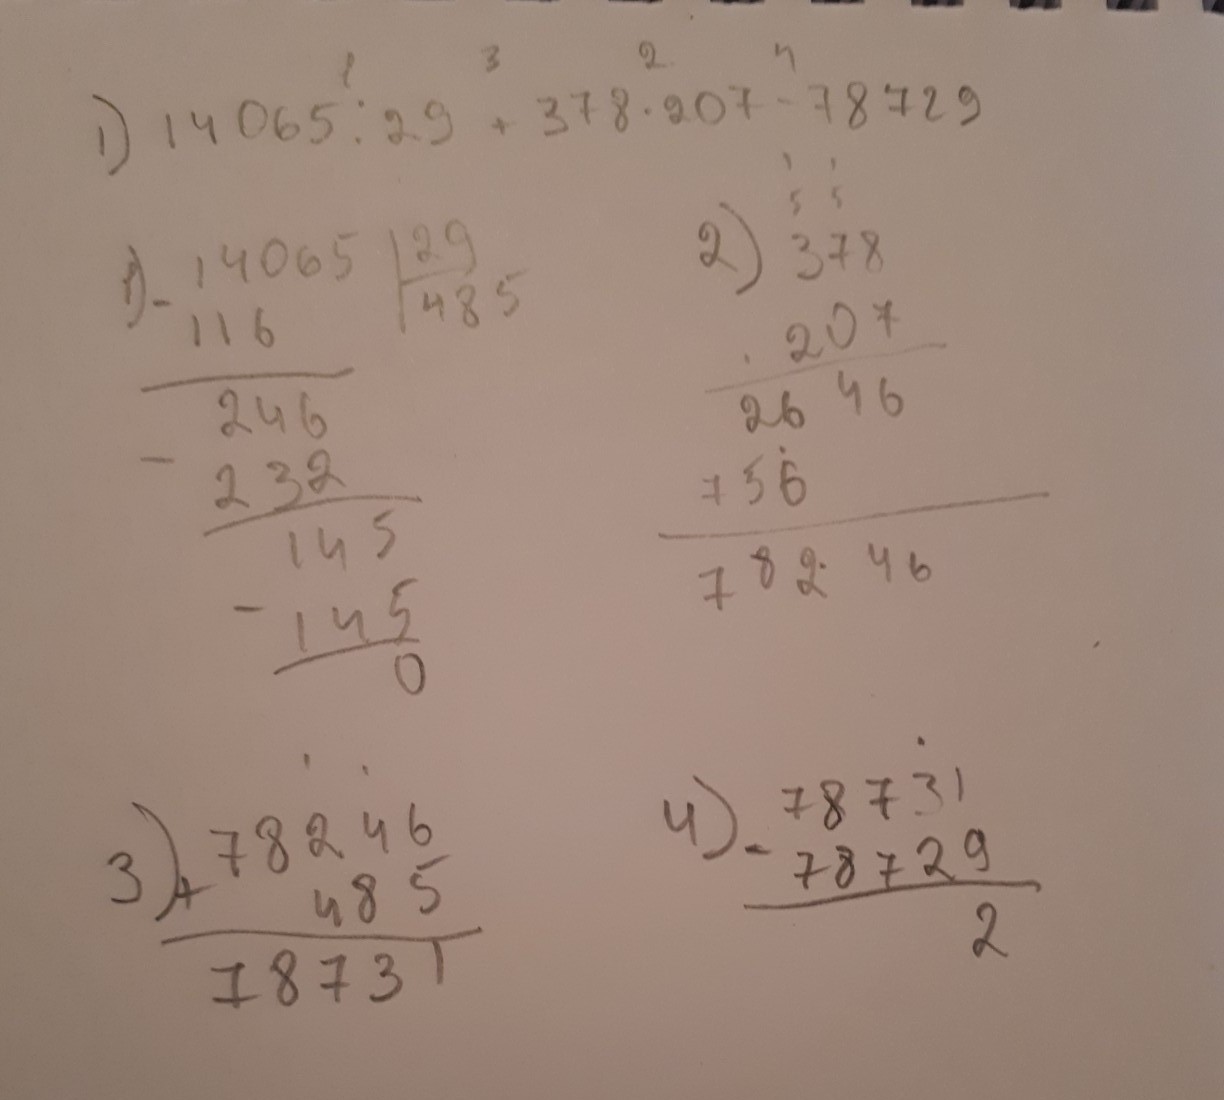 1 3 2 4
1) 14065 : 29 + 378 · 207 - 78729
1) - 14065 | 29
116 | 485
246
- 232
145
- 145
0
1 1
5 5
2) 378
· 207
2646
756
78246
3) + 78246
485
78731
4) - 78731
78729
2